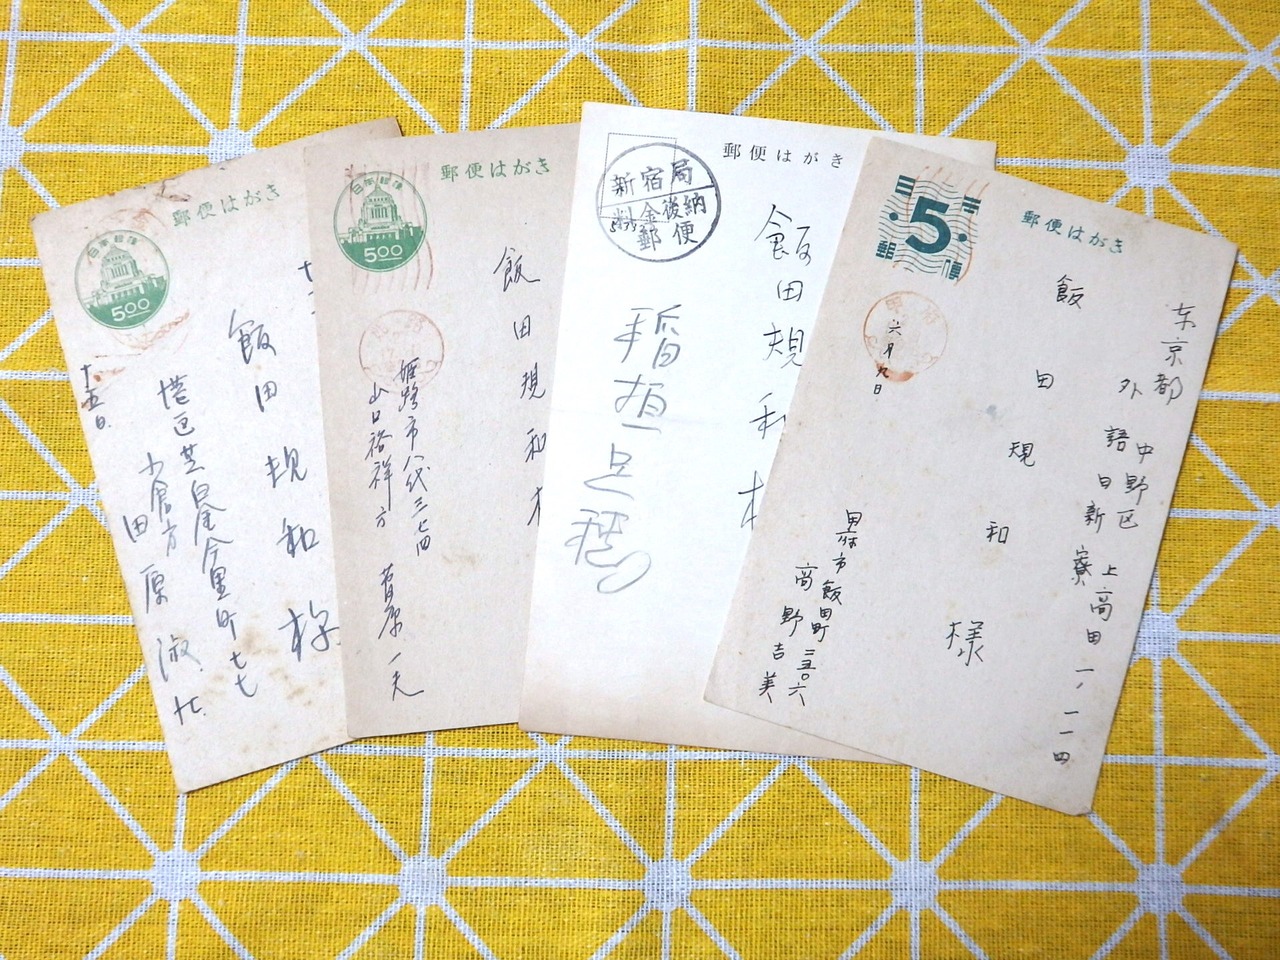 郵便はがき
日本郵便
5.00
飯田規和様
港区芝白金今里町七七
小倉方
十五日
郵便はがき
日本郵便
5.00
飯田規和
姫路市八代三七四
山口裕祥方
菅原一夫
郵便はがき
新宿局
料金後納
郵便
飯田規和
稲垣足穂
郵便はがき
日本
5
郵便
东京都
中野区上高田一ノ一一四
外語日新寮
飯田規和様
六月九日
市飯田町二五〇六
高野吉美